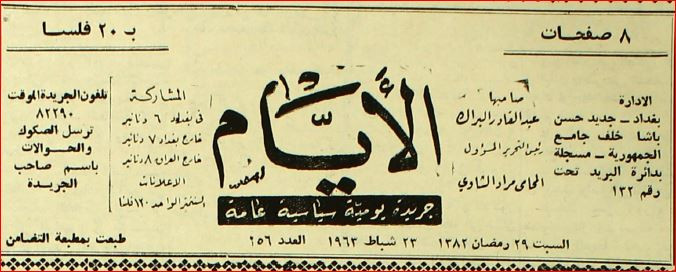 ٨ صفحات
بـ ٢٠ فلسا
الادارة
بغداد ـ جديد حسن
باشا خلف جامع
الجمهورية ـ مسجلة
بدائرة البريد تحت
رقم ١٣٢
صاحبها
عبدالقادر البراك
رئيس التحرير المسؤول
المحامي مراد الشاوي
الأيام
جريدة يومية سياسية عامة
المشاركة
في بغداد ٦ دنانير
خارج بغداد ٧ دنانير
خارج العراق ٨ دنانير
الاعلانات
السنتمتر الواحد ١٢٠ فلسا
تلفون الجريدة الموقت
٨٢٢٩٠
ترسل الصكوك
والحوالات
باسم صاحب
الجريدة
السبت ٢٩ رمضان ١٣٨٢ ٢٣ شباط ١٩٦٣ العدد ٢٥٦ طبعت بمطبعة التضامن